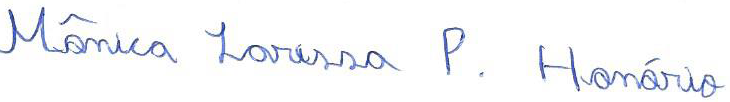 Mônica Larissa P. Honório